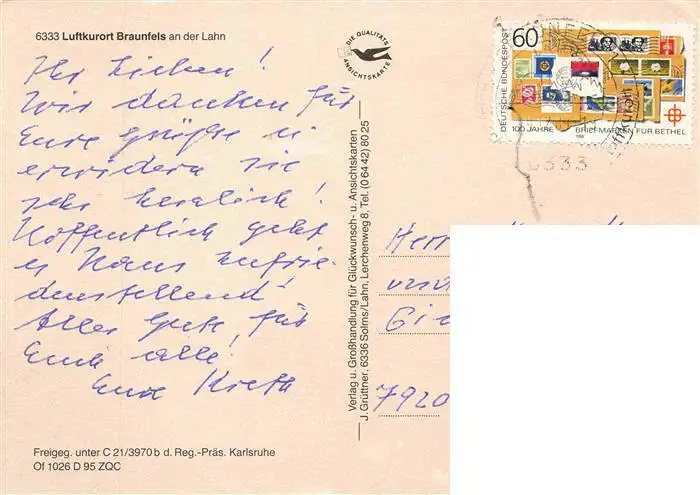 6333 Luftkurort Braunfels an der Lahn
Ihr Lieben!
Wir danken für
Eure Grüße u
erwidern sie
sehr herzlich!
Hoffentlich geht
es Hans zufrie-
denstellend!
Alles Gute, für
Euch alle!
Eure Kreth
Freigeg. unter C 21/3970 b d. Reg.-Präs. Karlsruhe
Of 1026 D 95 ZQC
DIE QUALITÄTS
ANSICHTSKARTE
Verlag u. Großhandlung für Glückwunsch- u. Ansichtskarten
J. Grüttner, 6336 Solms/Lahn, Lerchenweg 8, Tel. (0 64 42) 80 25
60
DEUTSCHE BUNDESPOST
100 JAHRE BRIEFMARKEN FÜR BETHEL
Luftkurort
6333
Herr
7920